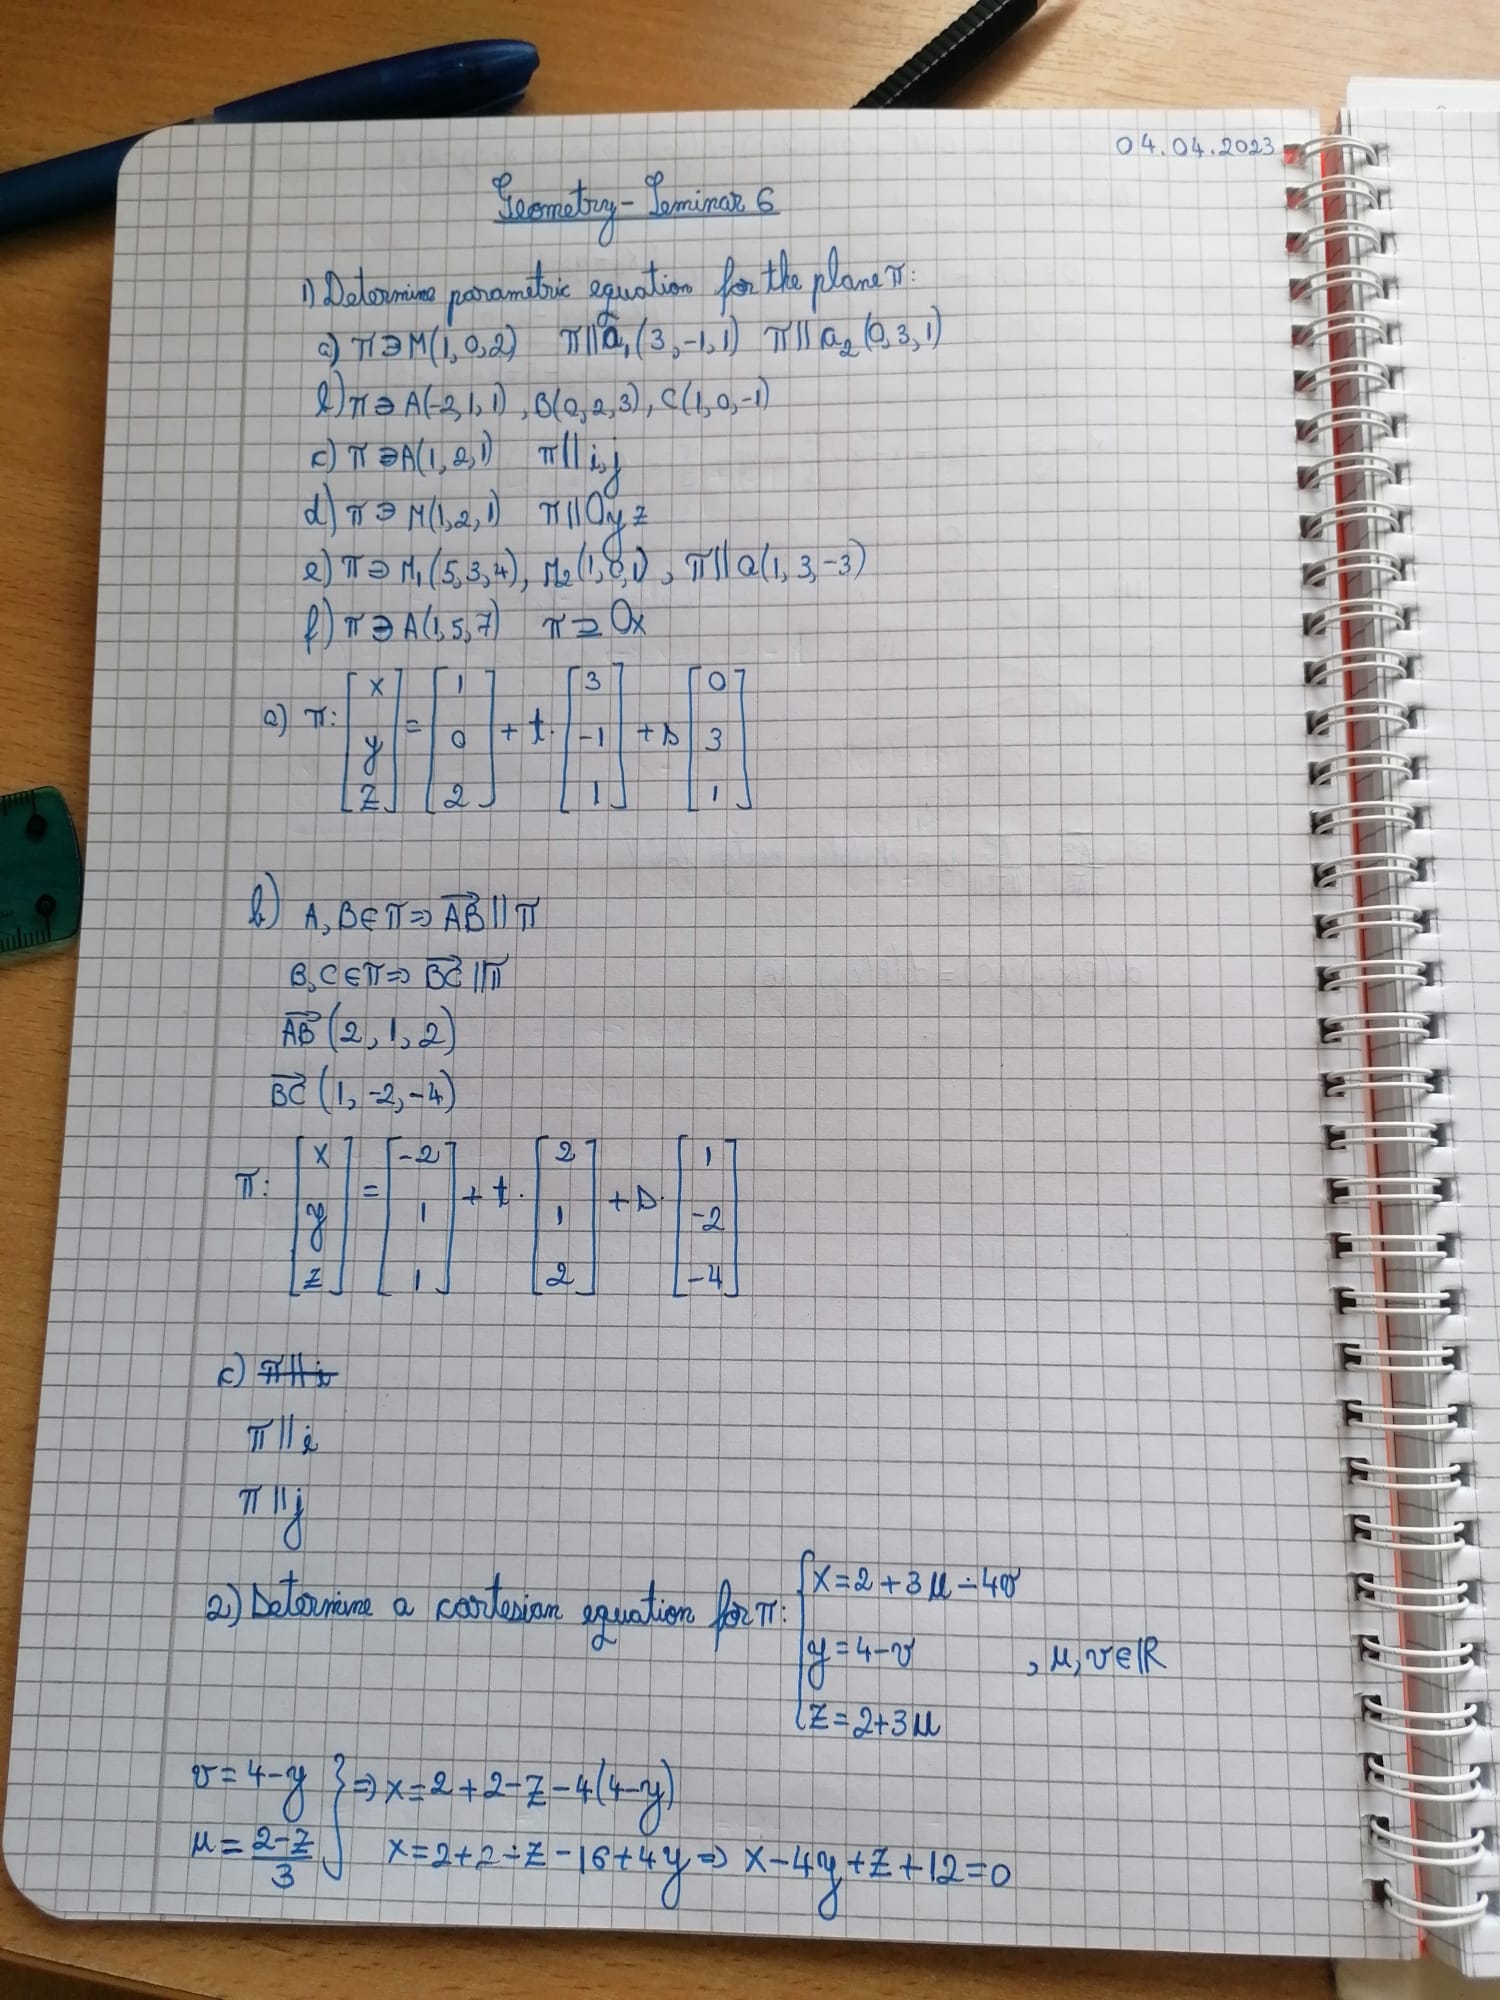 04.04.2023
Geometry - Seminar 6
1) Determine parametric equation for the plane π:
a) π∋M(1,0,2) π||a₁(3,-1,1) π||a₂(0,3,1)
b) π∋A(-2,1,1), B(0,2,3), C(1,0,-1)
c) π∋A(1,2,1) π||i,j
d) π∋M(1,2,1) π||Oyz
e) π∋M₁(5,3,4), M₂(1,0,1), π||a(1,3,-3)
f) π∋A(1,5,7) π⊇Ox
a) π: [x y z] = [1 0 2] + t·[3 -1 1] + s[0 3 1]
b) A,B∈π⇒AB||π
B,C∈π⇒BC||π
AB(2,1,2)
BC(1,-2,-4)
π: [x y z] = [-2 1 1] + t·[2 1 2] + s·[1 -2 -4]
c) π||i
π||i
π||j
2) Determine a cartesian equation for π: {x=2+3μ-4v
y=4-v , μ,v∈ℝ
z=2+3μ
v=4-y }⇒x=2+2-z-4(4-y)
μ=(2-z)/3 x=2+2-z-16+4y⇒x-4y+z+12=0